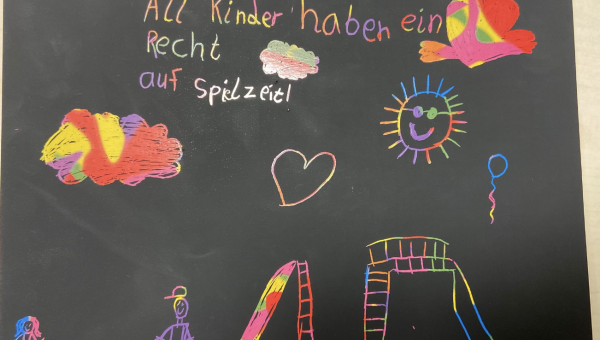 All Kinder haben ein
Recht
auf Spielzeit!